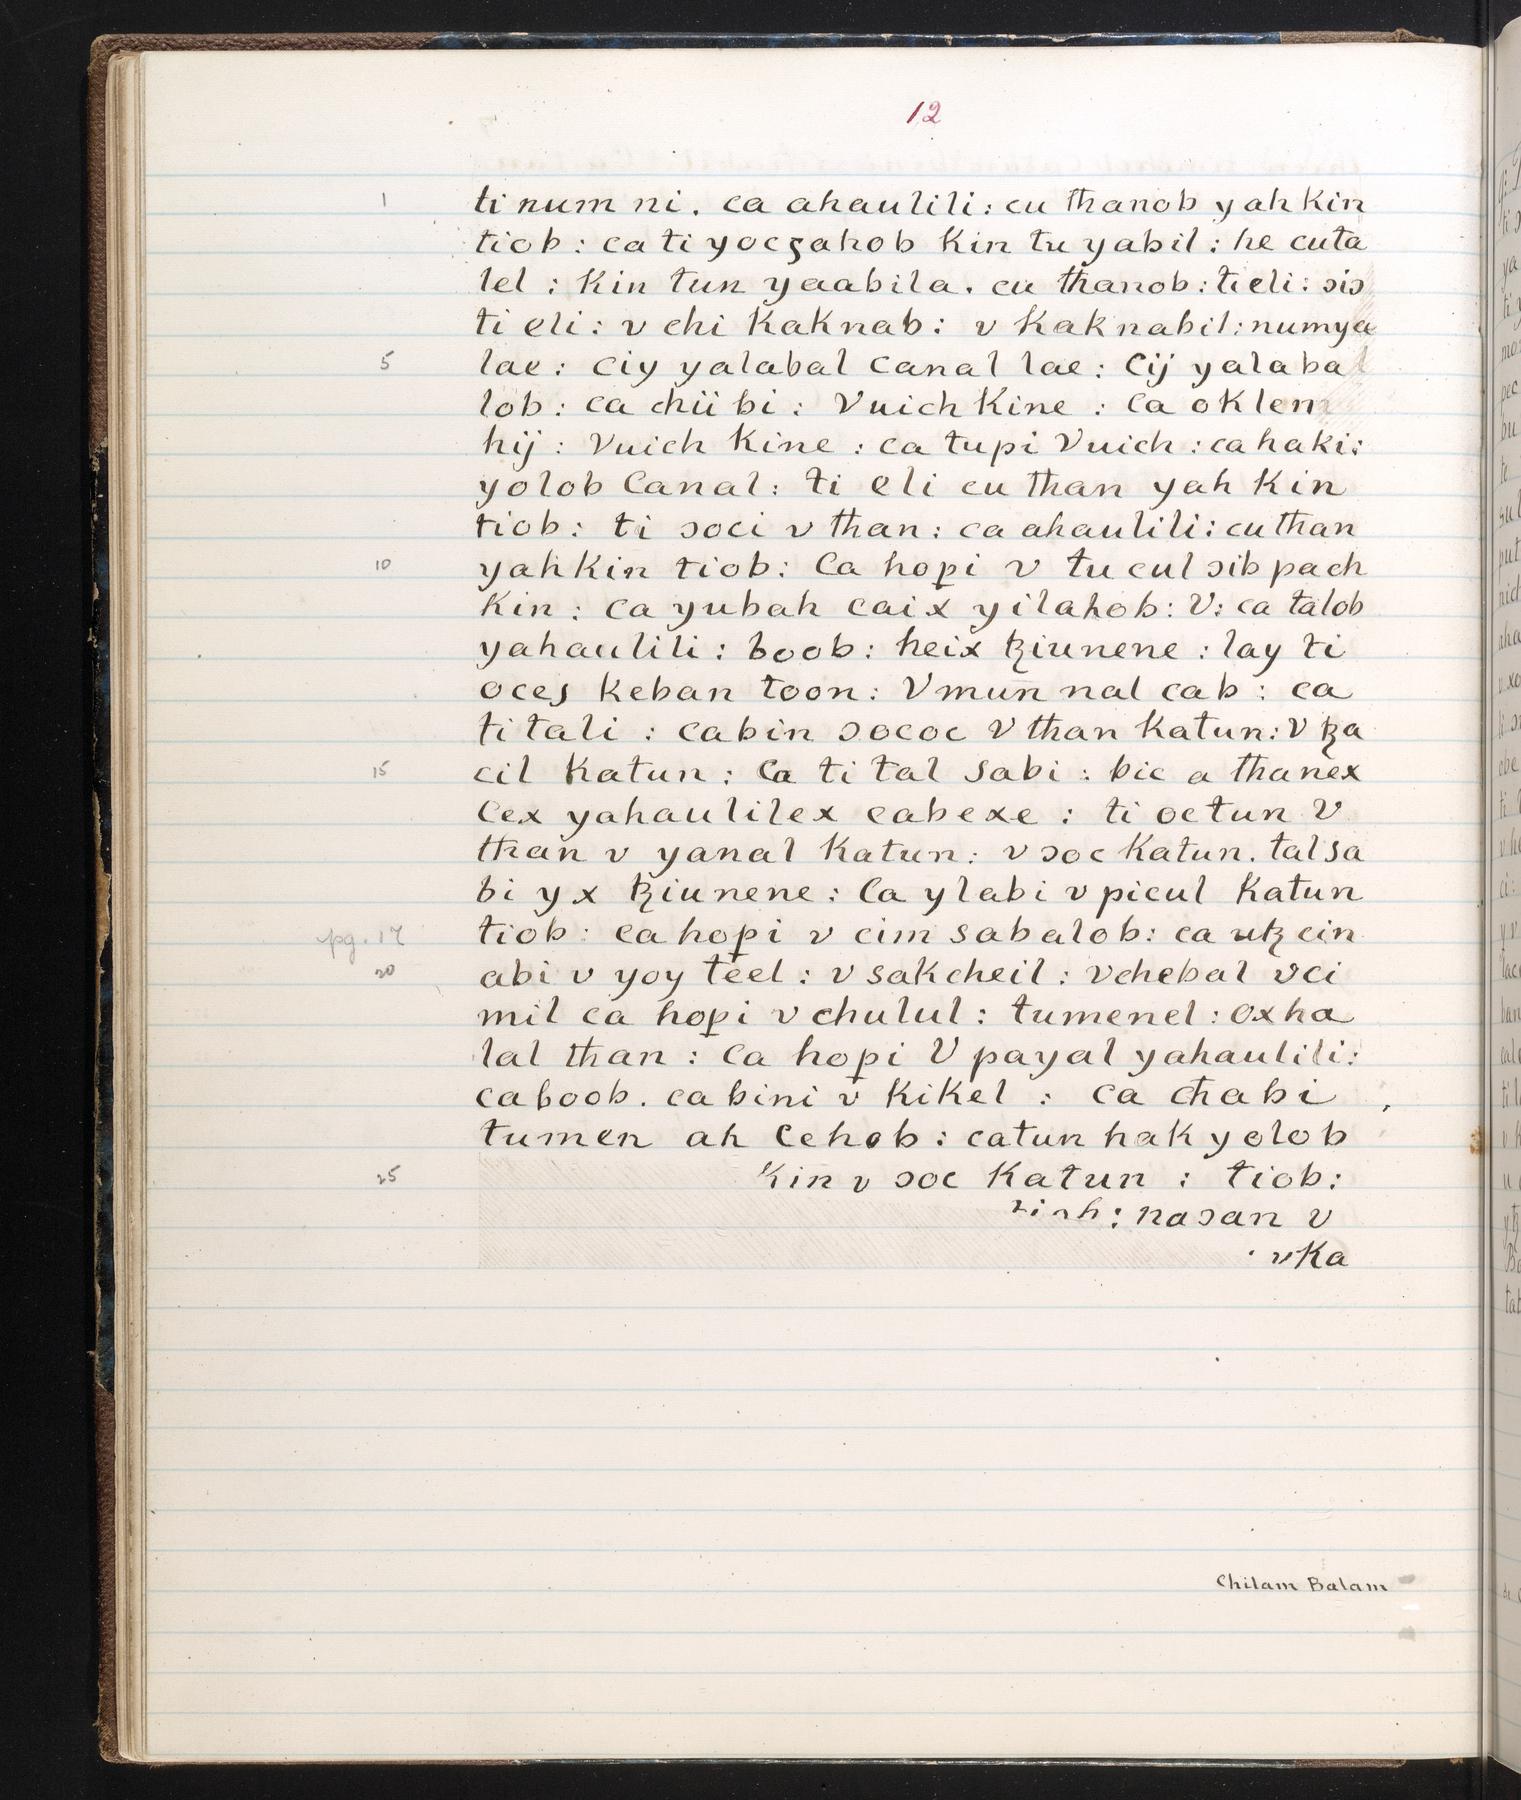 12
1 ti num ni. ca ahaulili: cu thanob yah Kin
tiob: ca ti yocçahob Kin tu yabil: he cuta
lel: Kin tun yaabila. cu thanob: ti eli: ɔiɔ
ti eli: v chi Kaknab: v Kaknabil: numya
5 lae: ciy yalabal canal lae: Cij yalabal
lob: ca chii bi: Vuich Kine: ca oKlem
hij: Vuich Kine: ca tupi Vuich: ca haki:
yolob Canal: ti eli cu than yah Kin
tiob: ti ɔoci v than: ca ahaulili: cu than
10 yah Kin tiob: Ca hopi v tucul ɔib pach
Kin: ca yubah caix yilahob: V: ca talob
yahaulili: boob: heix ꜩiunene: lay ti
oces Keban toon: Vmun nal cab: ca
ti tali: cabin ɔococ V than Katun: V ꜩa
15 cil Katun: Ca ti tal sabi: bic a thanex
Cex yahaulilex cabexe: ti octun V
than v yanal Katun: v ɔoc Katun. talsa
bi yx ꜩiunene: Ca ylabi v picul Katun
pg. 17 tiob: ca hopi v cim sabalob: ca utꜩ cin
20 abi v yoy teel: v sakcheil: vchebal vci
mil ca hopi v chulul: tumenel: oxha
lal than: ca hopi V payal yahaulili:
caboob. ca bini v KiKel: ca chabi
tumen ah Cehob: catun hak yolob
25 Kin v ɔoc Katun: tiob:
: naɔan v
vKa
Chilam Balam